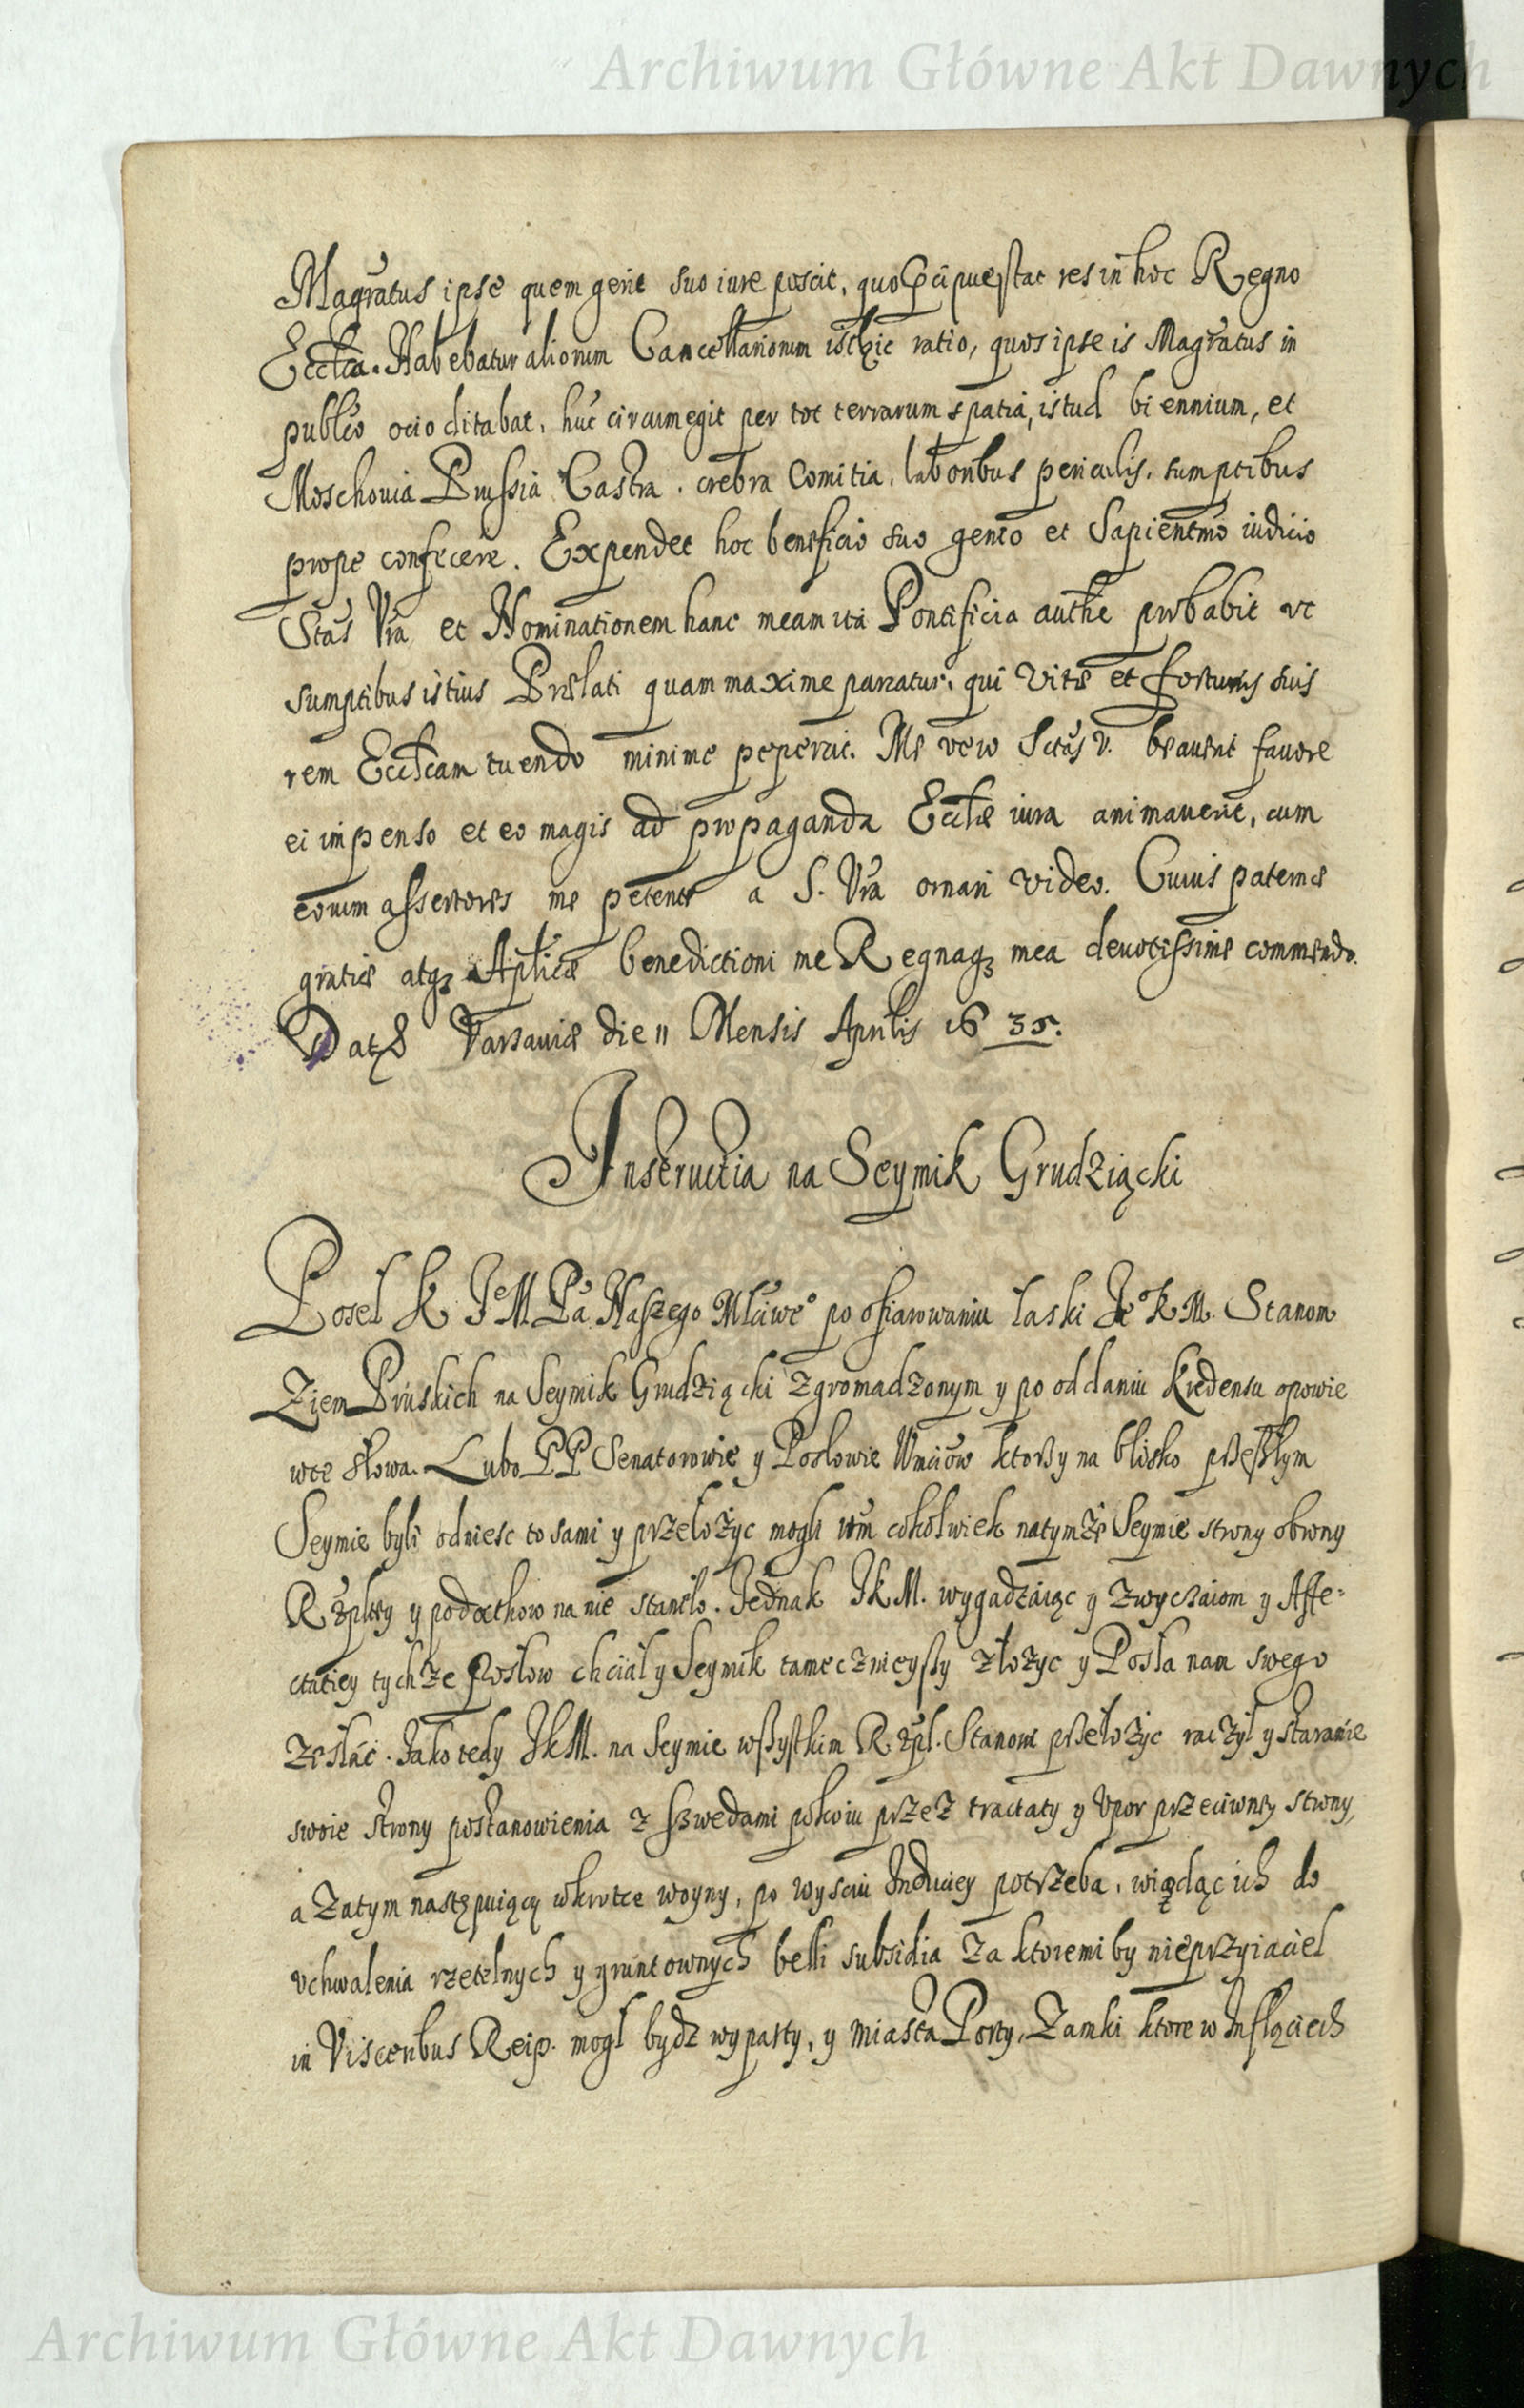 Archiwum Główne Akt Dawnych
Magr̃atus ipse quem gerit suo iure poscit, quo p̃cipue stat res in hoc Regno
Eccl̃ca. Habebatur aliorum Cancellariorum isthic ratio, quos ipse is Magr̃atus in
publĩco ocio ditabat, huc circumegit per tot terrarum spatia, istud biennium, et
Moschouia Prussia Castra, crebra Comitia, laboribus periculis, sumptibus
prope confecere. Expendet hoc beneficio suo genio et Sapientm̃o iudicio
Stas Vr̃a et Nominationem hanc meam ita Pontificia authe probabit vt
sumptibus istius Prælati quam maxime parcatur, qui vitæ et fortunis suis
rem Eccl̃cam tuendo minime pepercit. Me vero Sctas V. beauerit favore
ei impenso et eo magis ad propaganda Eccl̃æ iura animauerit, cum
eorum assertores me petente a S. Vr̃a ornari video. Cuius paternæ
gratiæ atqꝫ Apl̃icæ benedictioni me Regnaqꝫ mea deuotissime commendo.
Dat Varsauiæ die 11 Mensis Aprilis 1635.
Instructia na Seymik Grudziącki
Poseł K Je M Pa Naszego Mściwe° po ofiarowaniu łaski Je° K M. Stanom
Ziem Pruskich na Seymik Grudziącki zgromadzonym y po oddaniu kredensu opowie
wte słowa. Lubo PP Senatorowie y Posłowie Wmciow ktorzy na blisko przeszłym
Seymie byli odniesc to sami y przełożyc mogli wm̃ cokolwiek natymże Seymie strony obrony
Rzpltey y podatkow na nie staneło. Jednak JKM. wygadzaiąc y zwyczaiom y Affe-
ctatiey tychże Posłow chciał y Seymik tamecznieyszy złożyc y Posła nan swego
zesłać. Jako tedy JKM. na Seymie wszystkim Rzpl. Stanom przełożyc raczył y staranie
swoie strony postanowienia z Szwedami pokoiu przez tractaty y Vpor przeciwney strony,
a zatym następuiący wkrotce woyny, po wyściu Induciey potrzeba, wiodąc ich do
vchwalenia rzetelnych y gruntownych belli subsidia za ktoremi by nieprzyiaciel
in Visceribus Reip. mogł bydz wyparty, y miasta Porty, Zamki ktore w Infląciech
Archiwum Główne Akt Dawnych